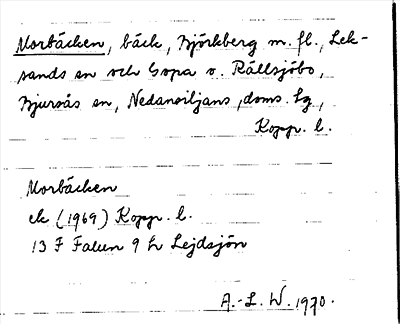 Morbäcken, bäck, Björkberg m. fl., Lek-
sands sn och Sopa o. Rällsjöbo,
Bjursås sn, Nedansiljans, doms. lg,
Kopp. l.
Morbäcken
ek (1969) Kopp. l.
13 F Falun 9 h Lejdsjön
A.-L. W. 1970.